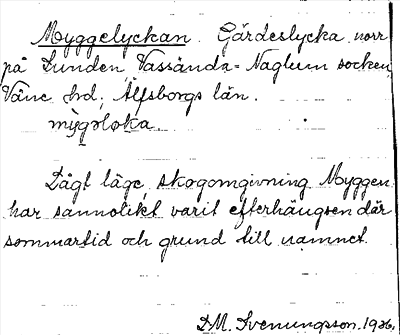 Myggelyckan. Gärdeslycka norr
på Lunden, Vassända-Naglum socken,
Väne hrd; Älfsborgs län.
mỳgəlꞷka
Lågt läge, skogomgivning. Myggen
har sannolikt varit efterhängsen där
sommartid och grund till namnet.
D.M. Svenungsson. 1926.